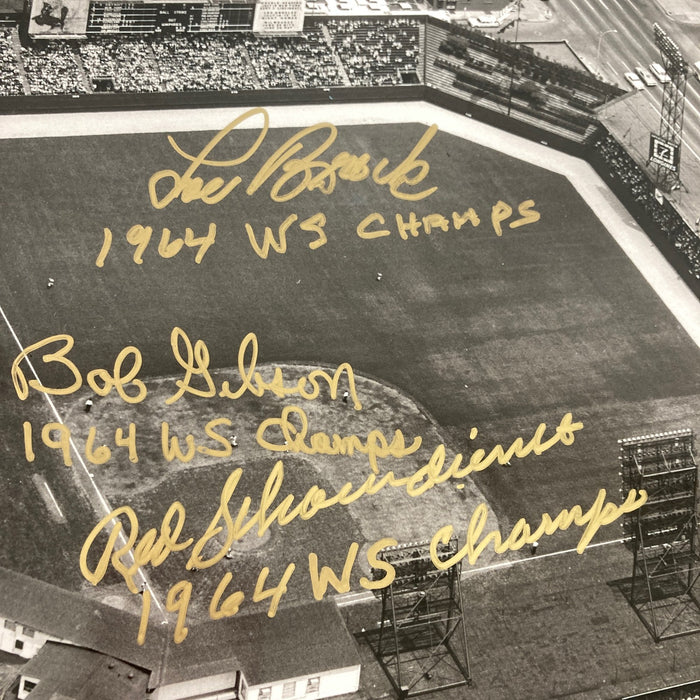 Lou Brock
1964 WS CHAMPS
Bob Gibson
1964 WS Champs
Red Schoendienst
1964 WS Champs